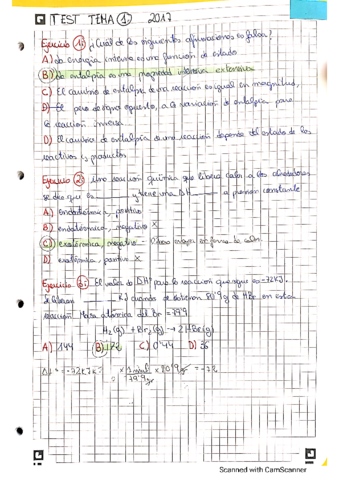 TEST TEMA 1 2017
Ejercicio 1: ¿Cuál de las siguientes afirmaciones es falsa?
A) La energía interna es una función de estado
B) La entalpía es una propiedad intensiva extensiva
C) El cambio de entalpía de una reacción es igual en magnitud,
pero de signo opuesto, a la variación de entalpía para
la reacción inversa
D) El cambio de entalpía de una reacción depende del estado de los
reactivos y productos
Ejercicio 2: Una reacción química que libera calor a los alrededores
se dice que es y tiene una ΔH a presión constante
A) endotérmica, positivo
B) endotérmica, negativo X
C) exotérmica, negativo
D) exotérmica, positivo X
Ejercicio 3: El valor de ΔHº para la reacción que sigue es -72KJ.
KJ cuando se obtienen 80'9g de HBr en esta
reacción. Masa atómica del Br = 79'9
H₂(g) + Br₂(g) → 2HBr(g)
A) 144 B) 72 C) 0'44 D) 36
Scanned with CamScanner